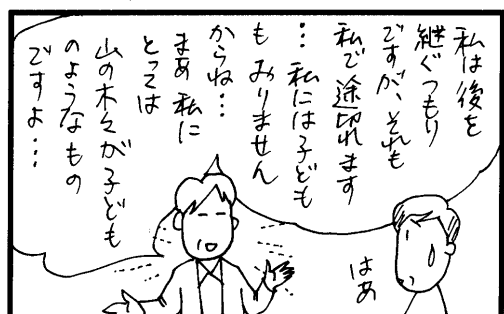 私は後を
継ぐつもり
ですが、それも
私で途切れます
…私には子ども
もおりません
からね…
まあ私に
とっては
山の木々が子ども
のようなもの
ですよ…
はあ